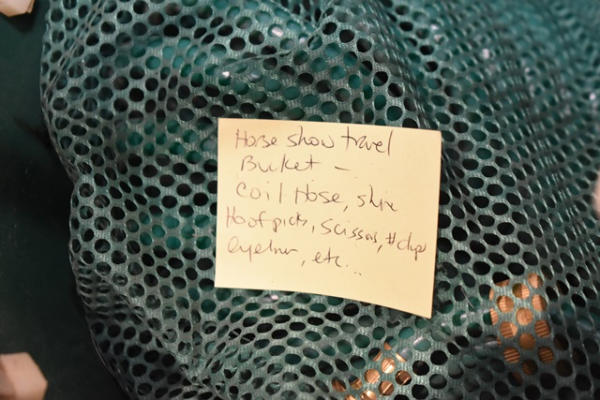 Horse show travel
Bucket -
Coil Hose, shin
Hoof picks, Scissors, # clips
eyeliner, etc...